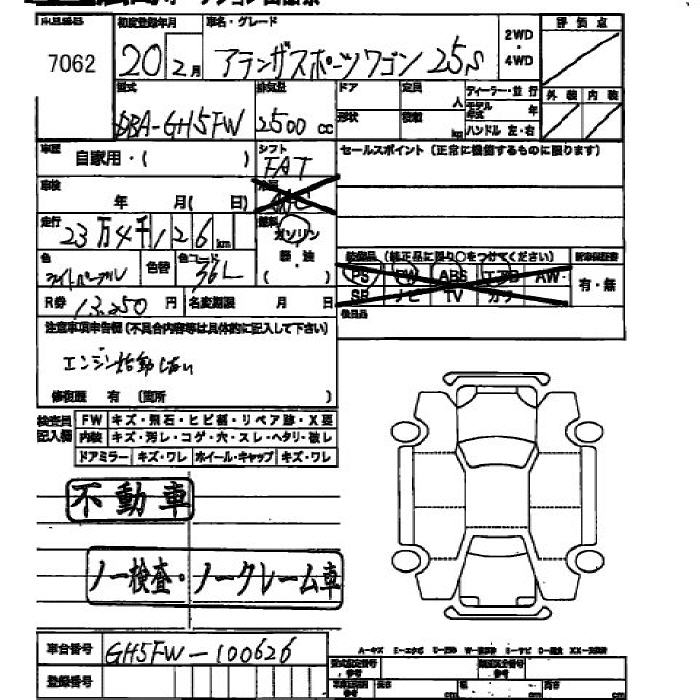 7062
初度登録年月
20 2月
車名・グレード
アテンザスポーツワゴン 25S
2WD・4WD
評価点
型式
DBA-GH5FW
排気量
2500 cc
ドア
定員
人
形状
積載
kg
ディーラー・並行
モデル年式
年
ハンドル 左・右
外装
内装
車歴
自家用・( )
シフト
FAT
セールスポイント(正常に機能するものに限ります)
車検
年 月( 日)
冷房
走行
23万4千126km
燃料
ガソリン
軽・油
( )
色
色替
色コード
36L
装備品(純正品に限り○をつけてください)
PS PW ABS エアB AW
SB ナビ TV カワ
有・無
後日品
R券 13,250円
名変期限 月 日
注意事項申告欄(不具合内容等は具体的に記入して下さい)
エンジン始動しない
修復歴 有 (箇所 )
検査員記入欄
FW キズ・飛石・ヒビ割・リペア跡・X要
内装 キズ・汚レ・コゲ・穴・スレ・ヘタリ・破レ
ドアミラー キズ・ワレ ホイール・キャップ キズ・ワレ
不動車
ノー検査・ノークレーム車
車台番号
GH5FW-100626
登録番号
A-キズ
長さ cm
幅 cm
高さ cm